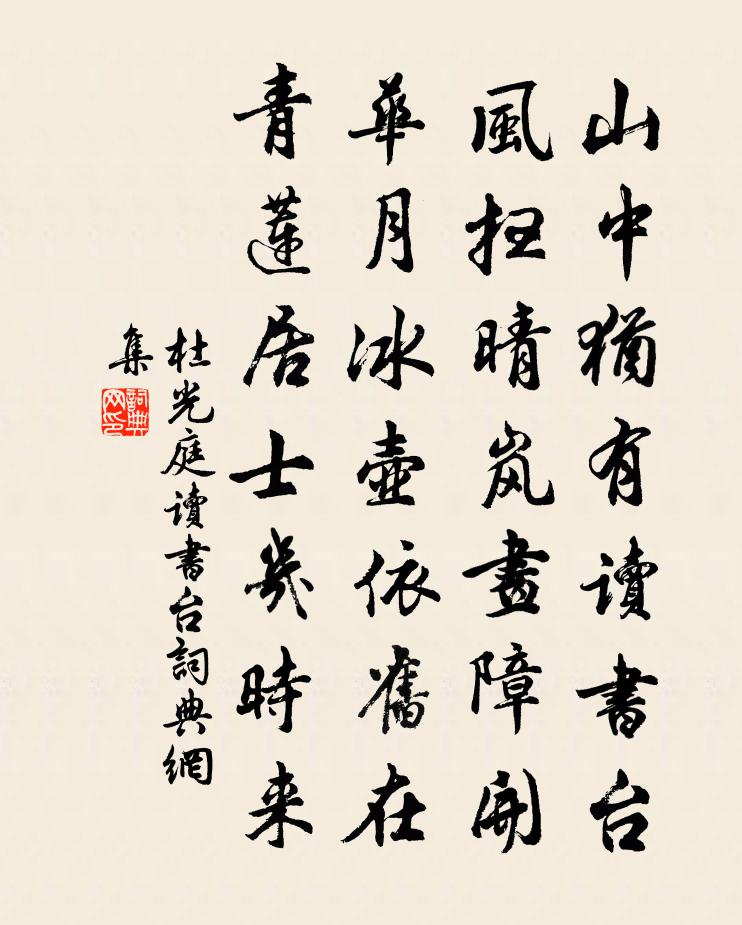 山中猶有讀書台
風扫晴岚畫障開
華月冰壺依舊在
青蓮居士幾時来
杜光庭讀書台詞典網
集
詞典
网印